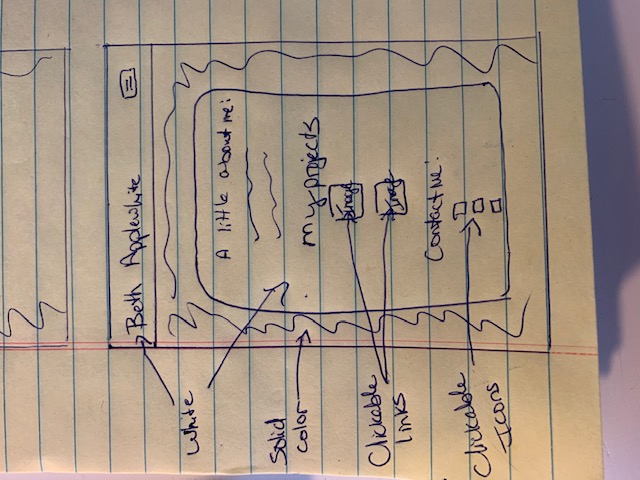 Beth Applewhite
White
A little about me:
Solid
color
My projects
image
Clickable
Links
image
Contact Me:
Clickable
Icons